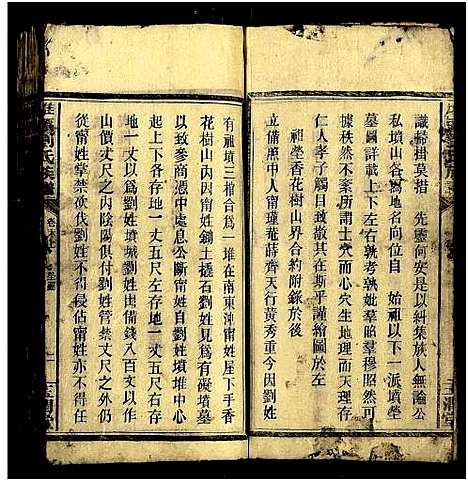 識歸掛莫措 先靈何安是以糾集族人無論公
私墳山各寫地名向位自 始祖以下一派墳塋
墓圖詳載上下左右孰考孰妣羣昭羣穆照然可
據秩然不紊所謂士穴而心穴生地理而天理存
仁人孝子觸目致敬其在斯乎謹繪圖於左
祖塋香花樹山界合約附錄於後
立重備人中甯瓊蕹蒔齊天行黃秀重今因劉姓
有祖墳三棺合為一堆在南東沖甯姓屋下手香
花樹山內因甯姓鋤土撬石劉姓見為有礙墳墓
以致參商憑中處息公斷甯姓自劉姓墳堆中心
起上下各存地一丈五尺左存地一丈五尺右存
地一丈以爲劉姓墳城劉姓出備錢八百文以作
山價丈尺之內陰陽俱付劉姓管禁丈尺之外仍
從甯姓掌禁欲伐劉姓不得侵佔甯姓亦不得任
劉氏族譜